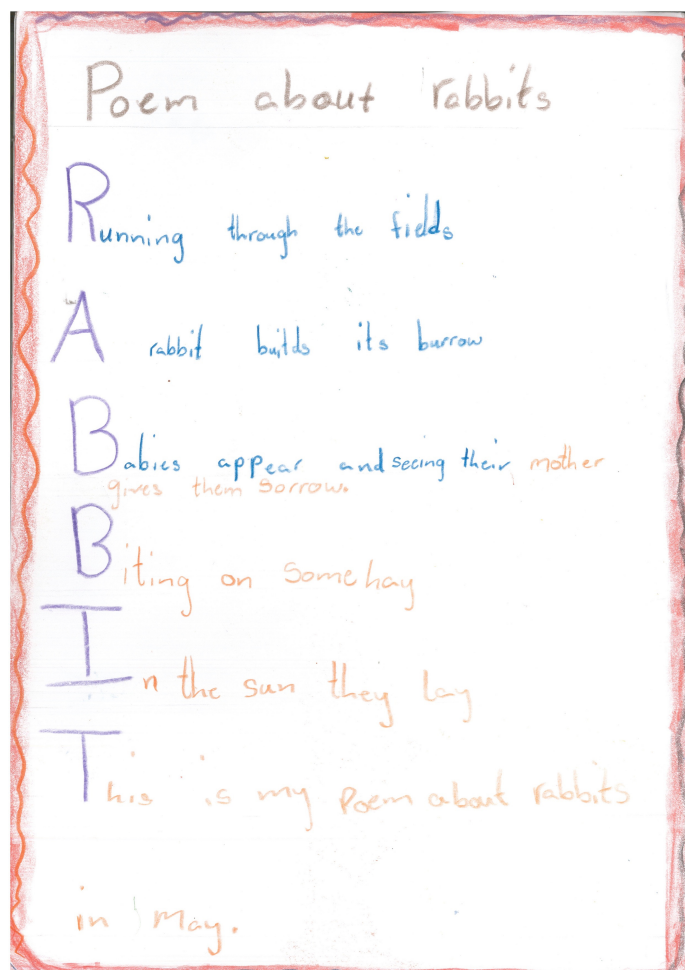 Poem about rabbits
Running through the fields
A rabbit builds its burrow
Babies appear and seeing their mother
gives them sorrow.
Biting on some hay
In the sun they lay
This is my poem about rabbits
in May.